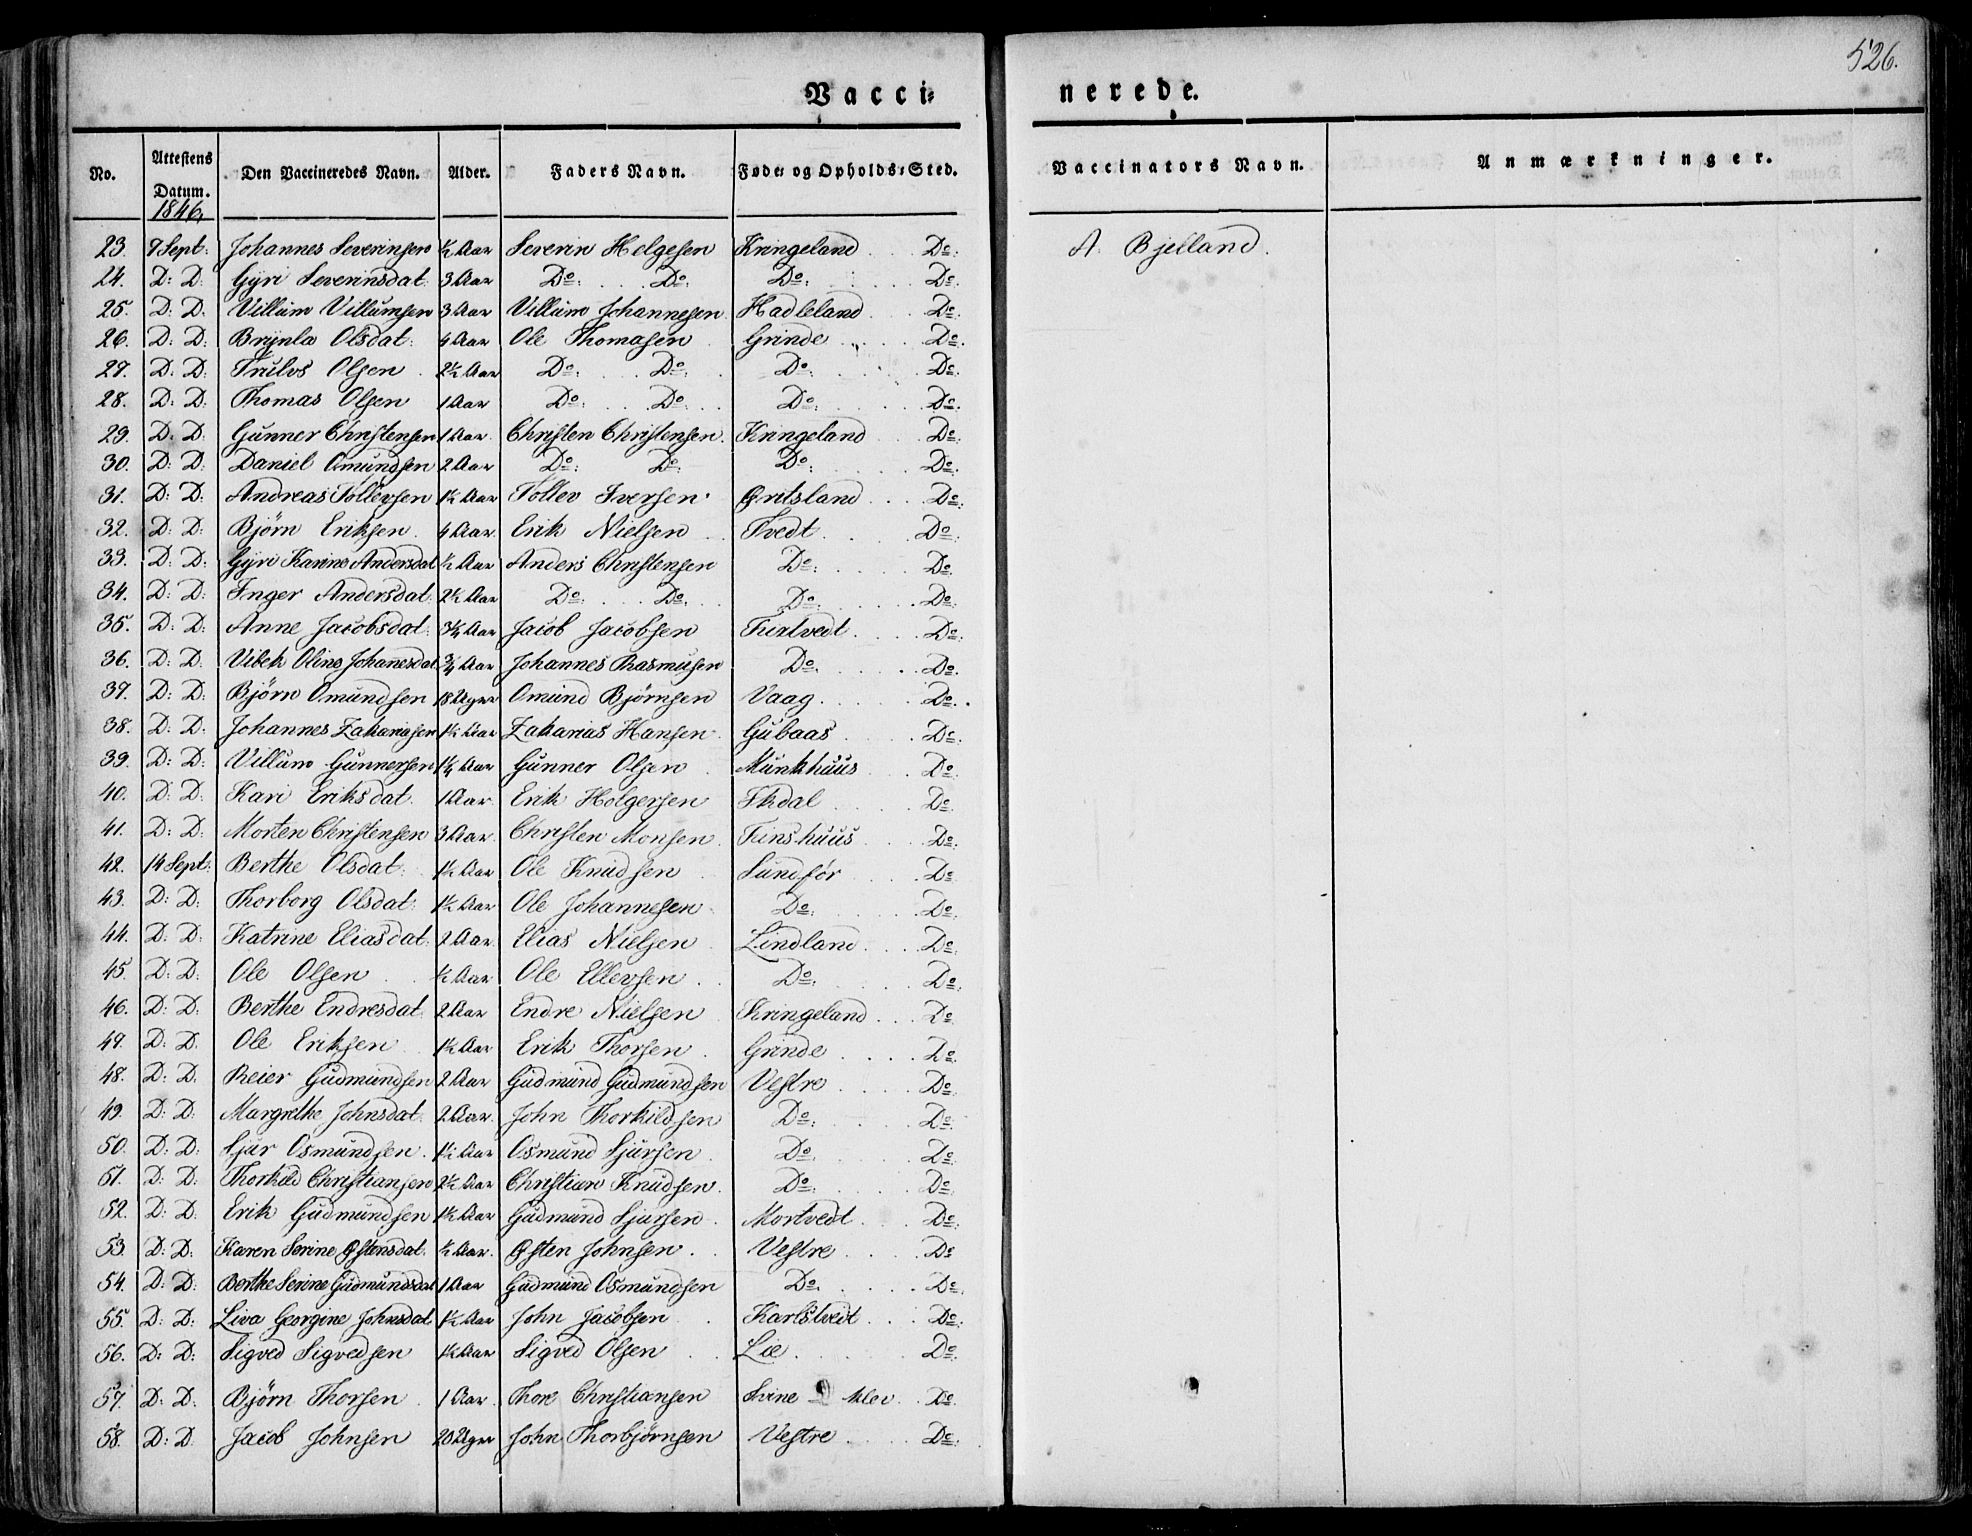 526.
Vacci⸗ nerede.
No. Attestens Datum. Den Vaccineredes Navn. Alder. Faders Navn. Føde⸗ og Opholds⸗Sted. Vaccinators Navn. Anmærkninger.
1846,
23. 7 Sept: Johannes Severinsen ½ Aar Severin Helgesen Kringeland . . . Do: A. Bjelland.
24. D: D: Gÿri Severinsdat: 3 Aar Do: . . . Do: Do: . . . Do:
25. D: D: Villum Villumsen 3 Aar Villum Johannesen Hadleland . . . Do:
26. D: D: Brÿnla Olsdat: 4 Aar Ole Thomasen Grinde . . . Do:
27. D: D: Trulvs Olsen 2½ Aar Do: . . . Do: Do: . . . Do:
28. D: D: Thomas Olsen 1 Aar Do: . . . Do: Do: . . . Do:
29. D: D: Gunner Christensen 1 Aar Christen Christensen Kringeland . . . Do:
30. D: D: Daniel Omundsen 2 Aar Do: Do: Do: . . . Do:
31. D: D: Andreas Tollevsen 1½ Aar Tollev Iversen Øritsland . . . Do:
32. D: D: Bjørn Eriksen 4 Aar Erik Nielsen Tvedt . . . Do:
33. D: D: Gÿri Karine Andersdat ½ Aar Anders Christensen Do: . . . Do:
34. D: D: Inger Andersdat: 2½ Aar Do: . . . Do: Do: . . . Do:
35. D: D: Anne Jacobsdat: 3¼ Aar Jacob Jacobsen Tuxtvedt . . . Do:
36. D: D: Vibek Oline Johanesdat ¾ Aar Johannes Rasmusen Do: . . . Do:
37. D: D: Bjørn Omundsen 18 Uger Omund Bjørnsen Vaag . . . Do:
38. D: D: Johannes Zakariasen 1½ Aar Zakarias Hansen Gubaas . . . Do:
39. D: D: Villum Gunnersen 1¼ Aar Gunner Olsen Munkhuus . . . Do:
40. D: D: Kari Eriksdat. 1 Aar. Erik Holgersen Ikdal . . . Do:
41. D: D: Morten Christensen 3 Aar. Christen Monsen Funshuus . . . Do:
42. 14 Sept: Berthe Olsdat: 1½ Aar Ole Knudsen Sundfør . . . Do:
43. D: D: Thorborg Olsdat: 1½ Aar Ole Johannesen Do: . . . Do:
44. D: D: Katrine Eliasdat: 2 Aar Elias Nielsen Lindland . . . Do:
45. D: D: Ole Olsen ½ Aar Ole Ellevsen Do: . . . Do:
46. D: D: Berthe Endresdat 2 Aar Endre Nielsen Kringeland . . . Do:
47. D: D. Ole Eriksen 1½ Aar Erik Thorsen Grinde . . . Do:
48. D: D: Reier Gudmundsen 2 Aar Gudmund Gudmundsen Vestre . . . Do:
49. D: D: Margrethe Johnsdat. 2 Aar John Thorkildsen Do: . . . Do:
50. D: D: Sjur Osmundsen. 1½ Aar Osmund Sjursen Do: . . . Do:
51. D: D: Thorkild Christiansen 2½ Aar Christian Knudsen. Do: . . . Do:
52. D: D: Erik Gudmundsen 1½ Aar Gudmund Sjursen Mortvedt . . . Do:
53. D: D: Karen Serine Østensdat. ½ Aar. Østen Johnsen. Vestre . . . Do:
54. D: D: Berthe Serine Gudmundsdat 1 Aar Gudmund Osmundsen Do: . . . Do:
55. D: D: Liva Georgine Johnsdat 1½ Aar John Jacobsen Karlstvedt . . . Do:
56. D: D: Sigved Sigvedsen 1½ Aar Sigved Olsen Lie . . . Do:
57. D: D. Bjørn Thorsen 1 Aar Thore Christiansen Svine klev . . . Do:
58. D: D. Jacob Johnsen 20 Uger John Thorbjørnsen Vestre . . . Do: